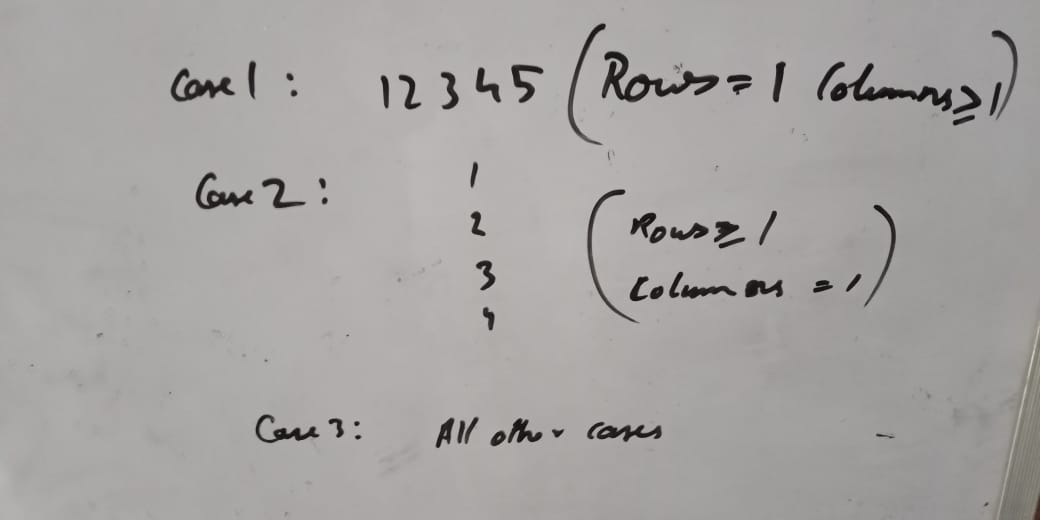 Case 1: 12345 (Rows = 1 Columns ≥ 1)
Case 2: 1
2
3
4
(Rows ≥ 1
Columns = 1)
Case 3: All other cases